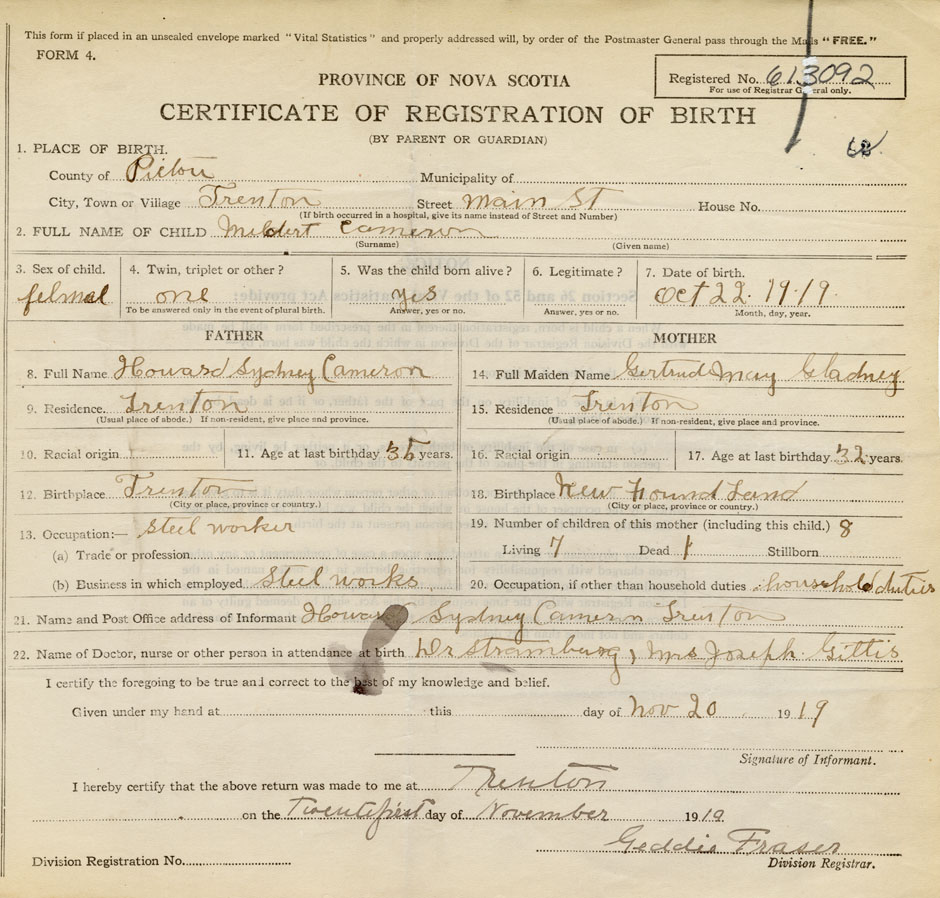 This form if placed in an unsealed envelope marked "Vital Statistics" and properly addressed will, by order of the Postmaster General pass through the Mails "FREE."
FORM 4.
PROVINCE OF NOVA SCOTIA
Registered No. 613092
For use of Registrar General only.
CERTIFICATE OF REGISTRATION OF BIRTH
(BY PARENT OR GUARDIAN)
1. PLACE OF BIRTH.
County of Pictou Municipality of
City, Town or Village Trenton Street Main St House No.
(If birth occurred in a hospital, give its name instead of Street and Number)
2. FULL NAME OF CHILD Cameron
(Surname) (Given name)
3. Sex of child. 4. Twin, triplet or other? 5. Was the child born alive? 6. Legitimate? 7. Date of birth.
felmal one yes Oct 22. 19.19.
To be answered only in the event of plural birth. Answer, yes or no. Answer, yes or no. Month, day, year.
FATHER MOTHER
8. Full Name Howard Sydney Cameron 14. Full Maiden Name Gertrud May Gladney
9. Residence. Trenton 15. Residence Trenton
(Usual place of abode.) If non-resident, give place and province. (Usual place of abode.) If non-resident, give place and province.
10. Racial origin 11. Age at last birthday 35 years. 16. Racial origin 17. Age at last birthday 32 years.
12. Birthplace Trenton 18. Birthplace New Found Land
(City or place, province or country.) (City or place, province or country.)
13. Occupation:— Steel worker 19. Number of children of this mother (including this child.) 8
(a) Trade or profession Living 7 Dead 1 Stillborn
(b) Business in which employed Steel works 20. Occupation, if other than household duties household duties
21. Name and Post Office address of Informant Howard Sydney Camern Trenton
22. Name of Doctor, nurse or other person in attendance at birth Dr Stramburg, Mrs Joseph Gittis
I certify the foregoing to be true and correct to the best of my knowledge and belief.
Given under my hand at this day of Nov 20 1919
Signature of Informant.
I hereby certify that the above return was made to me at Trenton
on the Twentefirst day of November 1919
Geddie Fraser
Division Registration No. Division Registrar.